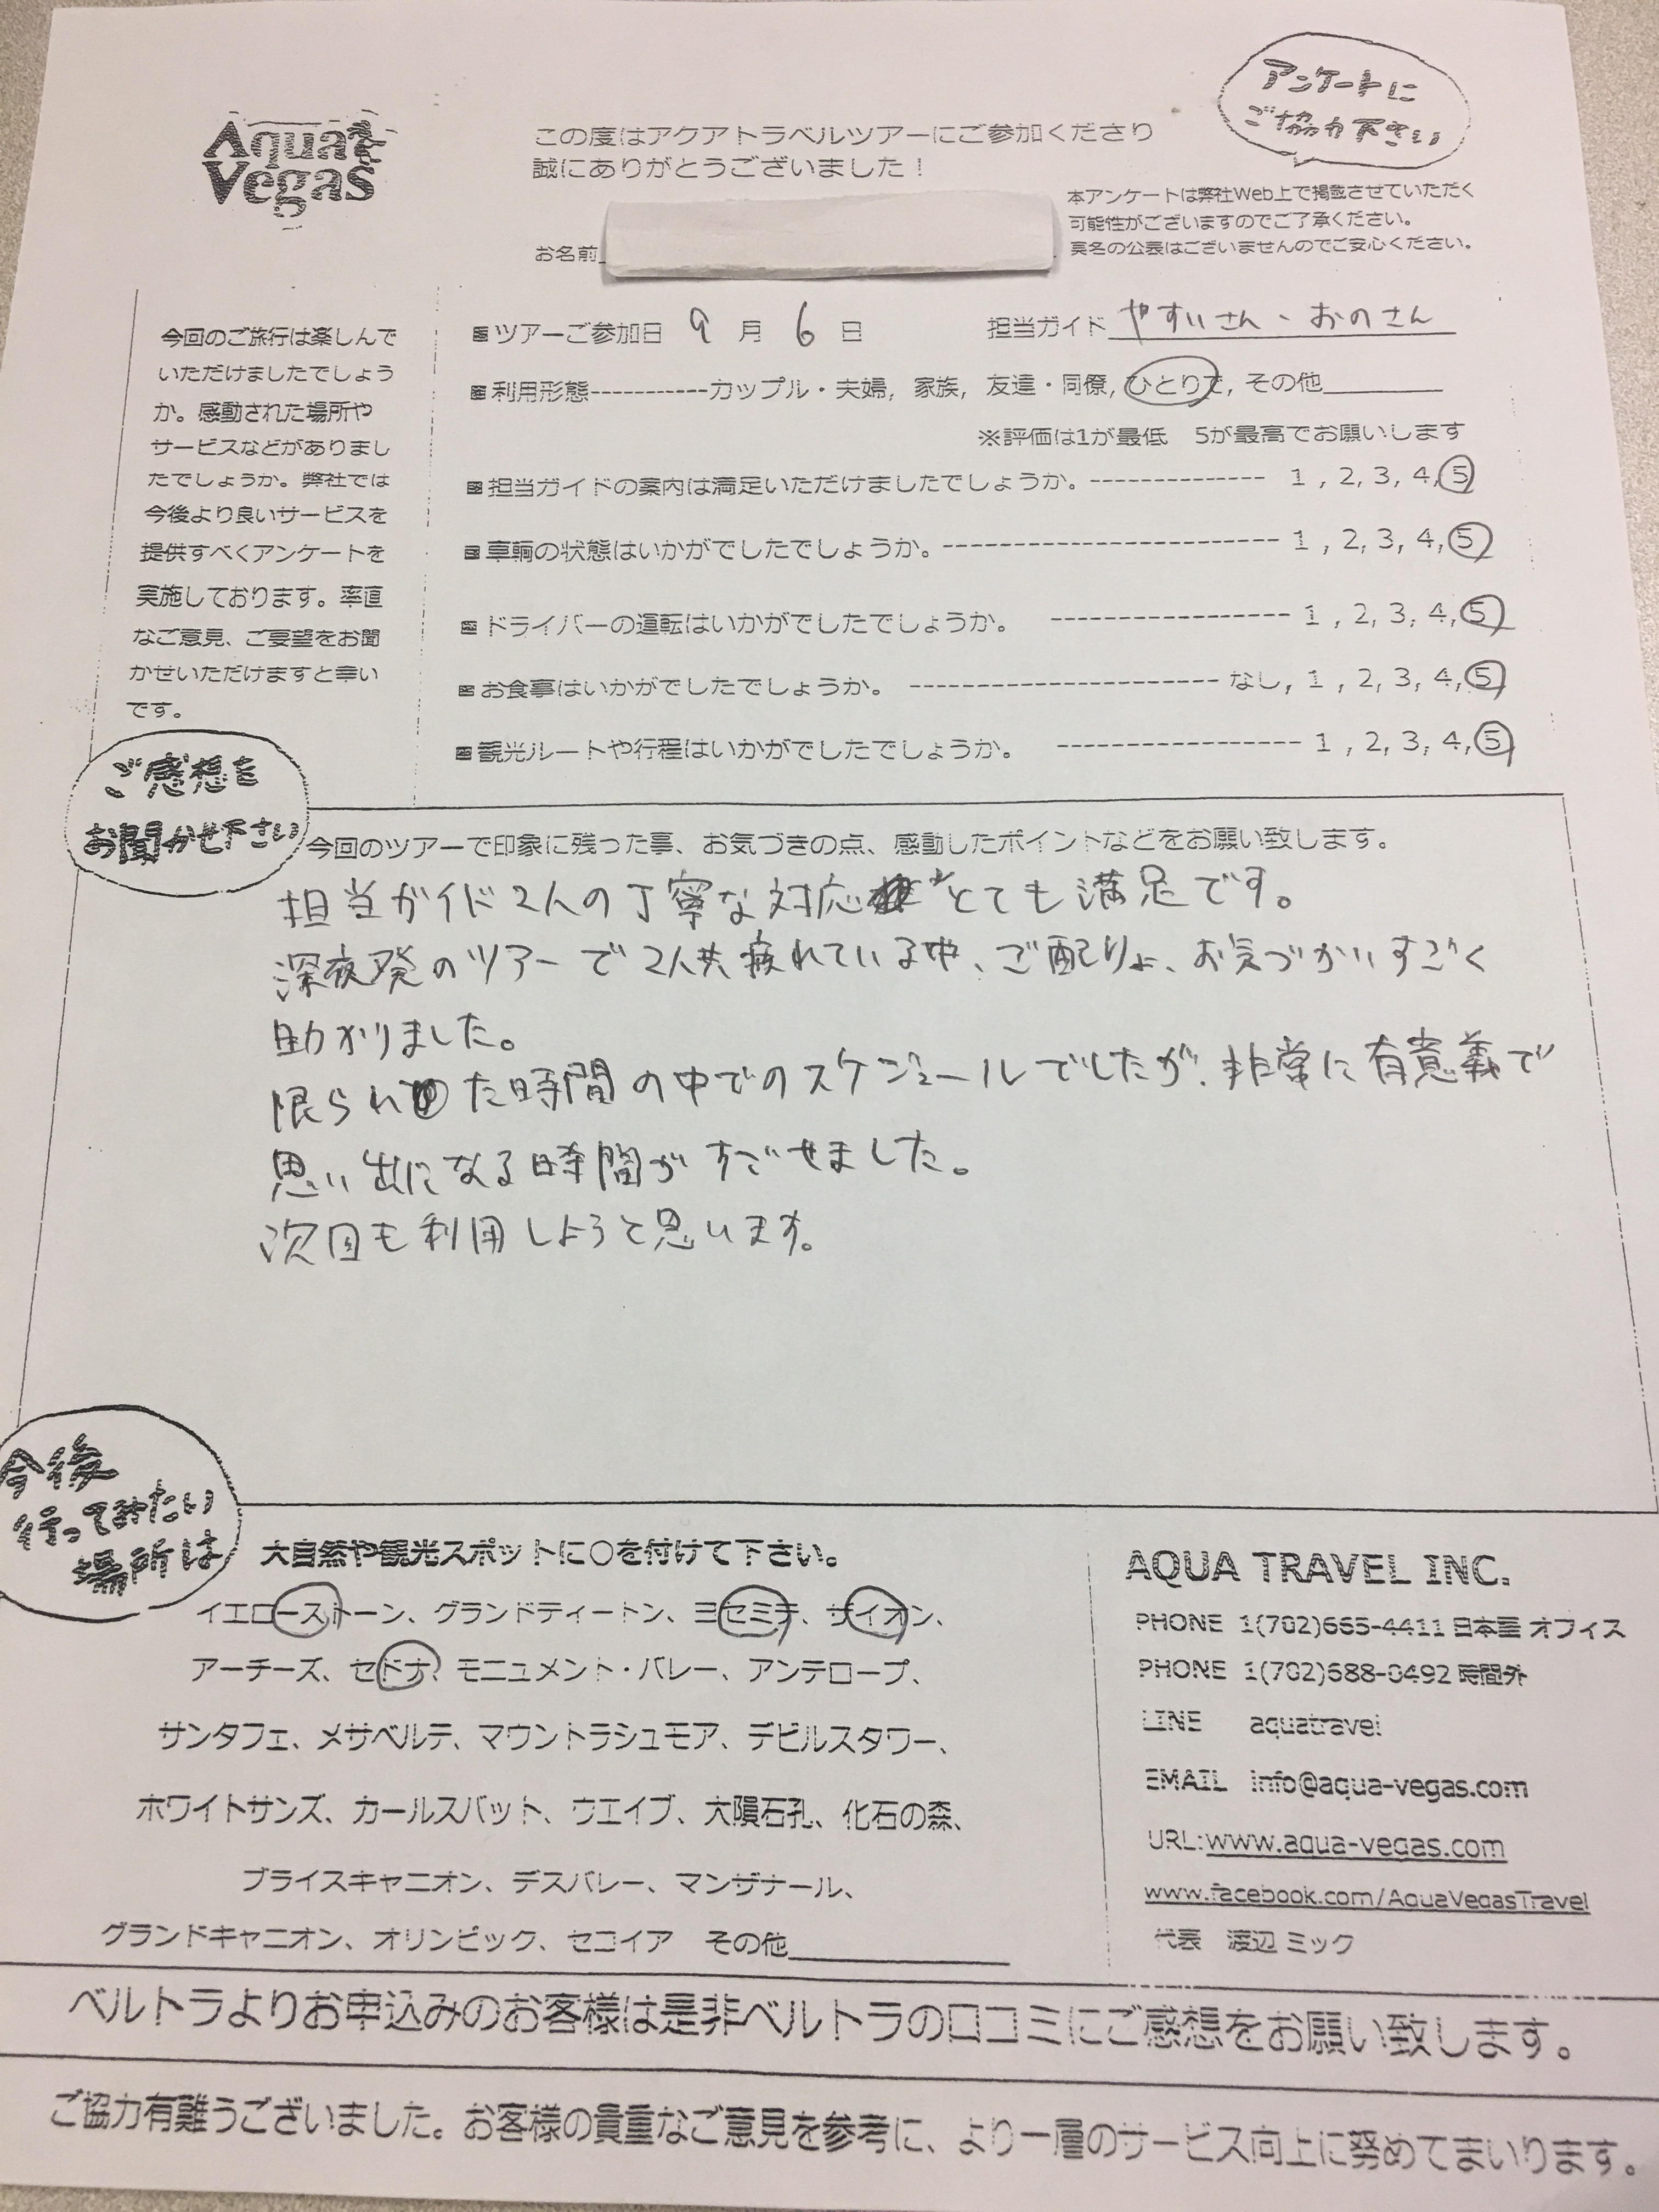 Aqua
Vegas
この度はアクアトラベルツアーにご参加くださり
誠にありがとうございました！
アンケートに
ご協力下さい
本アンケートは弊社Web上で掲載させていただく
可能性がございますのでご了承ください。
実名の公表はございませんのでご安心ください。
お名前
今回のご旅行は楽しんで
いただけましたでしょう
か。感動された場所や
サービスなどがありまし
たでしょうか。弊社では
今後より良いサービスを
提供すべくアンケートを
実施しております。率直
なご意見、ご要望をお聞
かせいただけますと幸い
です。
ツアーご参加日 9 月 6 日 担当ガイド やすいさん、おのさん
利用形態-----------カップル・夫婦, 家族, 友達・同僚, ひとりで, その他
※評価は1が最低 5が最高でお願いします
担当ガイドの案内は満足いただけましたでしょうか。-------------- 1 , 2, 3, 4, 5
車輌の状態はいかがでしたでしょうか。--------------------------- 1 , 2, 3, 4, 5
ドライバーの運転はいかがでしたでしょうか。 ------------------- 1 , 2, 3, 4, 5
お食事はいかがでしたでしょうか。 ------------------------- なし, 1 , 2, 3, 4, 5
観光ルートや行程はいかがでしたでしょうか。 -------------------- 1 , 2, 3, 4, 5
ご感想を
お聞かせ下さい
今回のツアーで印象に残った事、お気づきの点、感動したポイントなどをお願い致します。
担当ガイド2人の丁寧な対応 とても満足です。
深夜発のツアーで2人共疲れている中、ご配りょ、お気づかいすごく
助かりました。
限られた時間の中でのスケジュールでしたが、非常に有意義で
思い出になる時間がすごせました。
次回も利用しようと思います。
今後
行ってみたい
場所は
大自然や観光スポットに○を付けて下さい。
イエローストーン、グランドティートン、ヨセミテ、ザイオン、
アーチーズ、セドナ、モニュメント・バレー、アンテロープ、
サンタフェ、メサベルデ、マウントラシュモア、デビルスタワー、
ホワイトサンズ、カールスバット、ウエイブ、大隕石孔、化石の森、
ブライスキャニオン、デスバレー、マンザナール、
グランドキャニオン、オリンピック、セコイア その他
AQUA TRAVEL INC.
PHONE 1(702)665-4411 日本語 オフィス
PHONE 1(702)688-0492 時間外
LINE aquatravel
EMAIL info@aqua-vegas.com
URL:www.aqua-vegas.com
www.facebook.com/AquaVegasTravel
代表 渡辺 ミック
ベルトラよりお申込みのお客様は是非ベルトラの口コミにご感想をお願い致します。
ご協力有難うございました。お客様の貴重なご意見を参考に、より一層のサービス向上に努めてまいります。